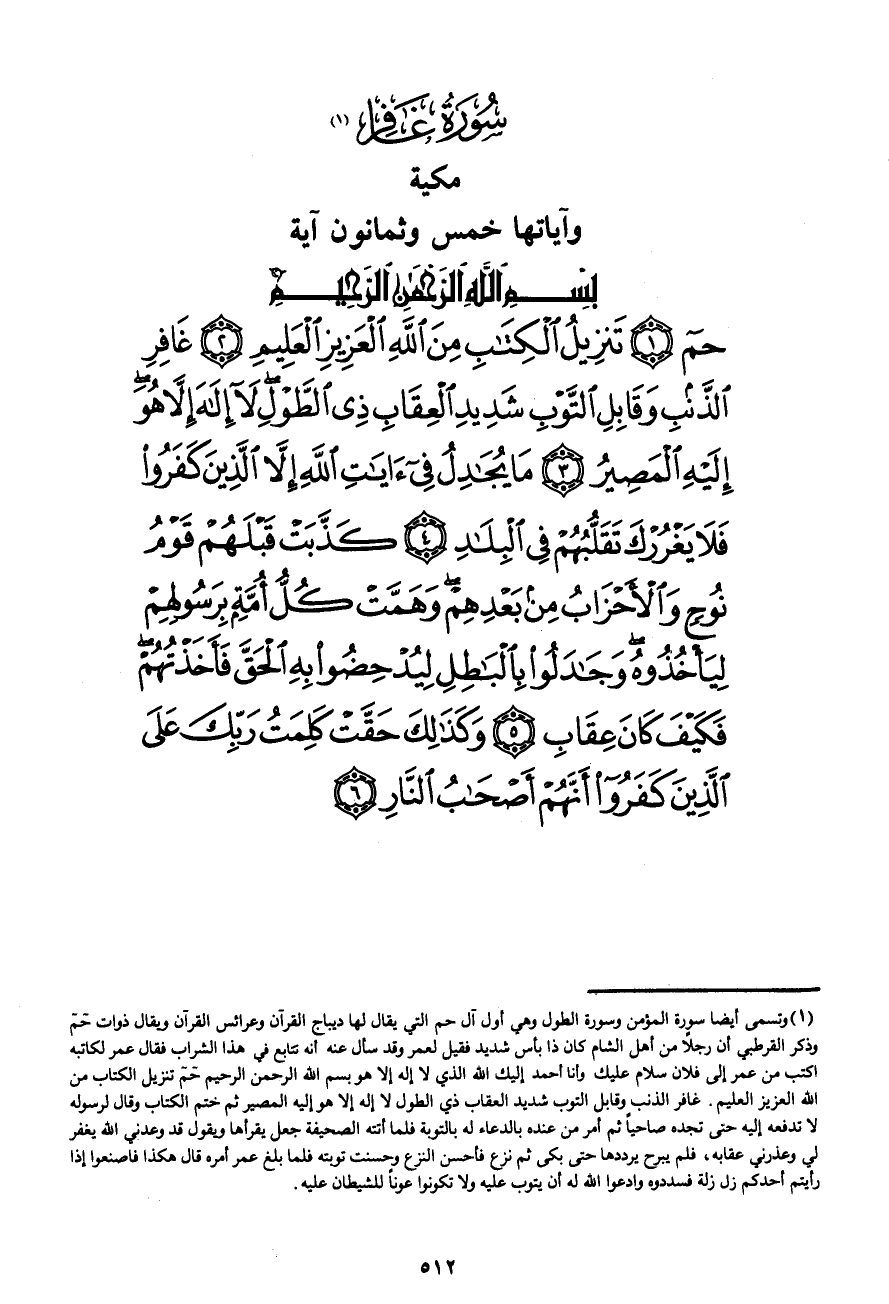 سُورَةُ غَافِر (١)
مكية
وآياتها خمس وثمانون آية
بِسْمِ ٱللَّهِ ٱلرَّحْمَٰنِ ٱلرَّحِيمِ
حمٓ ١ تَنزِيلُ ٱلْكِتَٰبِ مِنَ ٱللَّهِ ٱلْعَزِيزِ ٱلْعَلِيمِ ٢ غَافِرِ
ٱلذَّنۢبِ وَقَابِلِ ٱلتَّوْبِ شَدِيدِ ٱلْعِقَابِ ذِى ٱلطَّوْلِ ۖ لَآ إِلَٰهَ إِلَّا هُوَ ۖ
إِلَيْهِ ٱلْمَصِيرُ ٣ مَا يُجَٰدِلُ فِىٓ ءَايَٰتِ ٱللَّهِ إِلَّا ٱلَّذِينَ كَفَرُوا۟
فَلَا يَغْرُرْكَ تَقَلُّبُهُمْ فِى ٱلْبِلَٰدِ ٤ كَذَّبَتْ قَبْلَهُمْ قَوْمُ
نُوحٍ وَٱلْأَحْزَابُ مِنۢ بَعْدِهِمْ ۖ وَهَمَّتْ كُلُّ أُمَّةٍۭ بِرَسُولِهِمْ
لِيَأْخُذُوهُ ۖ وَجَٰدَلُوا۟ بِٱلْبَٰطِلِ لِيُدْحِضُوا۟ بِهِ ٱلْحَقَّ فَأَخَذْتُهُمْ ۖ
فَكَيْفَ كَانَ عِقَابِ ٥ وَكَذَٰلِكَ حَقَّتْ كَلِمَتُ رَبِّكَ عَلَى
ٱلَّذِينَ كَفَرُوٓا۟ أَنَّهُمْ أَصْحَٰبُ ٱلنَّارِ ٦
(١) وتسمى أيضا سورة المؤمن وسورة الطول وهي أول آل حم التي يقال لها ديباج القرآن وعرائس القرآن ويقال ذوات حَمّ
وذكر القرطبي أن رجلًا من أهل الشام كان ذا بأس شديد فقيل لعمر وقد سأل عنه أنه تتابع في هذا الشراب فقال عمر لكاتبه
اكتب من عمر إلى فلان سلام عليك وأنا أحمد إليك الله الذي لا إله إلا هو بسم الله الرحمن الرحيم حَمّ تنزيل الكتاب من
الله العزيز العليم . غافر الذنب وقابل التوب شديد العقاب ذي الطول لا إله إلا هو إليه المصير ثم ختم الكتاب وقال لرسوله
لا تدفعه إليه حتى تجده صاحياً ثم أمر من عنده بالدعاء له بالتوبة فلما أتته الصحيفة جعل يقرأها ويقول قد وعدني الله يغفر
لي وعذرني عقابه، فلم يبرح يرددها حتى بكى ثم نزع فأحسن النزع وحسنت توبته فلما بلغ عمر أمره قال هكذا فاصنعوا إذا
رأيتم أحدكم زل زلة فسددوه وادعوا الله له أن يتوب عليه ولا تكونوا عوناً للشيطان عليه .
٥١٢